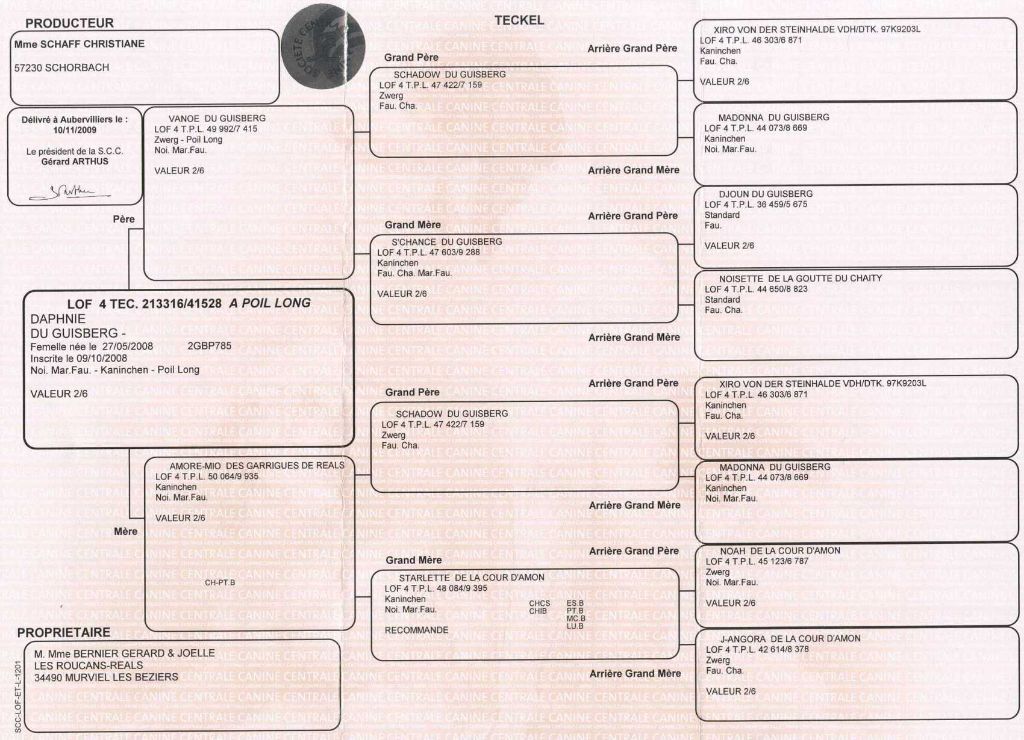 PRODUCTEUR
Mme SCHAFF CHRISTIANE
57230 SCHORBACH
Délivré à Aubervilliers le :
10/11/2009
Le président de la S.C.C.
Gérard ARTHUS
TECKEL
Père
VANOE DU GUISBERG
LOF 4 T.P.L. 49 992/7 415
Zwerg - Poil Long
Noi. Mar.Fau.
VALEUR 2/6
LOF 4 TEC. 213316/41528 A POIL LONG
DAPHNIE
DU GUISBERG -
Femelle née le 27/05/2008 2GBP785
Inscrite le 09/10/2008
Noi. Mar.Fau. - Kaninchen - Poil Long
VALEUR 2/6
Mère
AMORE-MIO DES GARRIGUES DE REALS
LOF 4 T.P.L. 50 064/9 935
Kaninchen
Noi. Mar.Fau.
VALEUR 2/6
CH-PT.B
PROPRIETAIRE
M. Mme BERNIER GERARD & JOELLE
LES ROUCANS-REALS
34490 MURVIEL LES BEZIERS
SCC-LOF-ET-L-1201
Grand Père
SCHADOW DU GUISBERG
LOF 4 T.P.L. 47 422/7 159
Zwerg
Fau. Cha.
Grand Mère
S'CHANCE DU GUISBERG
LOF 4 T.P.L. 47 603/9 288
Kaninchen
Fau. Cha. Mar.Fau.
VALEUR 2/6
Grand Père
SCHADOW DU GUISBERG
LOF 4 T.P.L. 47 422/7 159
Zwerg
Fau. Cha.
Grand Mère
STARLETTE DE LA COUR D'AMON
LOF 4 T.P.L. 48 084/9 395
Kaninchen
Noi. Mar.Fau.
RECOMMANDE
CHCS ES.B
CHIB PT.B
MC.B
LU.B
Arrière Grand Père
XIRO VON DER STEINHALDE VDH/DTK. 97K9203L
LOF 4 T.P.L. 46 303/6 871
Kaninchen
Fau. Cha.
VALEUR 2/6
Arrière Grand Mère
MADONNA DU GUISBERG
LOF 4 T.P.L. 44 073/8 669
Kaninchen
Noi. Mar.Fau.
Arrière Grand Père
DJOUN DU GUISBERG
LOF 4 T.P.L. 36 459/5 675
Standard
Fau.
VALEUR 2/6
Arrière Grand Mère
NOISETTE DE LA GOUTTE DU CHAITY
LOF 4 T.P.L. 44 650/8 823
Standard
Fau. Cha.
Arrière Grand Père
XIRO VON DER STEINHALDE VDH/DTK. 97K9203L
LOF 4 T.P.L. 46 303/6 871
Kaninchen
Fau. Cha.
VALEUR 2/6
Arrière Grand Mère
MADONNA DU GUISBERG
LOF 4 T.P.L. 44 073/8 669
Kaninchen
Noi. Mar.Fau.
Arrière Grand Père
NOAH DE LA COUR D'AMON
LOF 4 T.P.L. 45 123/6 787
Zwerg
Noi. Mar.Fau.
VALEUR 2/6
Arrière Grand Mère
J-ANGORA DE LA COUR D'AMON
LOF 4 T.P.L. 42 614/8 378
Zwerg
Fau. Cha.
VALEUR 2/6